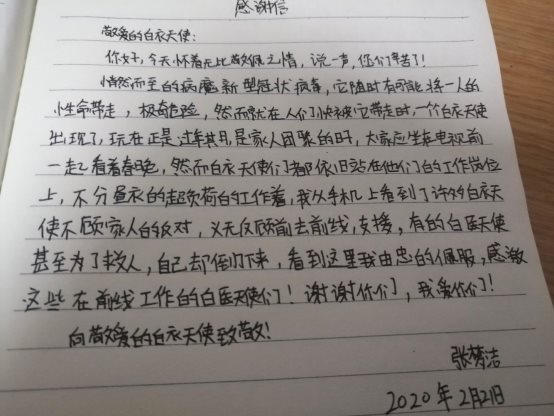 感谢信
敬爱的白衣天使：
你好，今天怀着无比敬佩之情，说一声，您们辛苦了！
悄然而至的病魔新型冠状病毒，它随时有可能将一人的
性命带走，极奇危险，然而就在人们快被它带走时，一个白衣天使
出现了，现在正是过年其月是家人团聚的时，大家应坐在电视前
一起看着春晚，然而白衣天使们都依旧站在他们的工作岗位
上，不分昼夜的超负荷的工作着，我从手机上看到了许多白衣天
使不顾家人的反对，义无反顾前去前线，支援，有的白医天使
甚至为了救人，自己却倒了下来，看到这里我由忠的佩服，感激
这些在前线工作的白医天使们！谢谢你们，我爱你们！
向敬爱的白衣天使致敬！
张梦洁
2020年2月2日